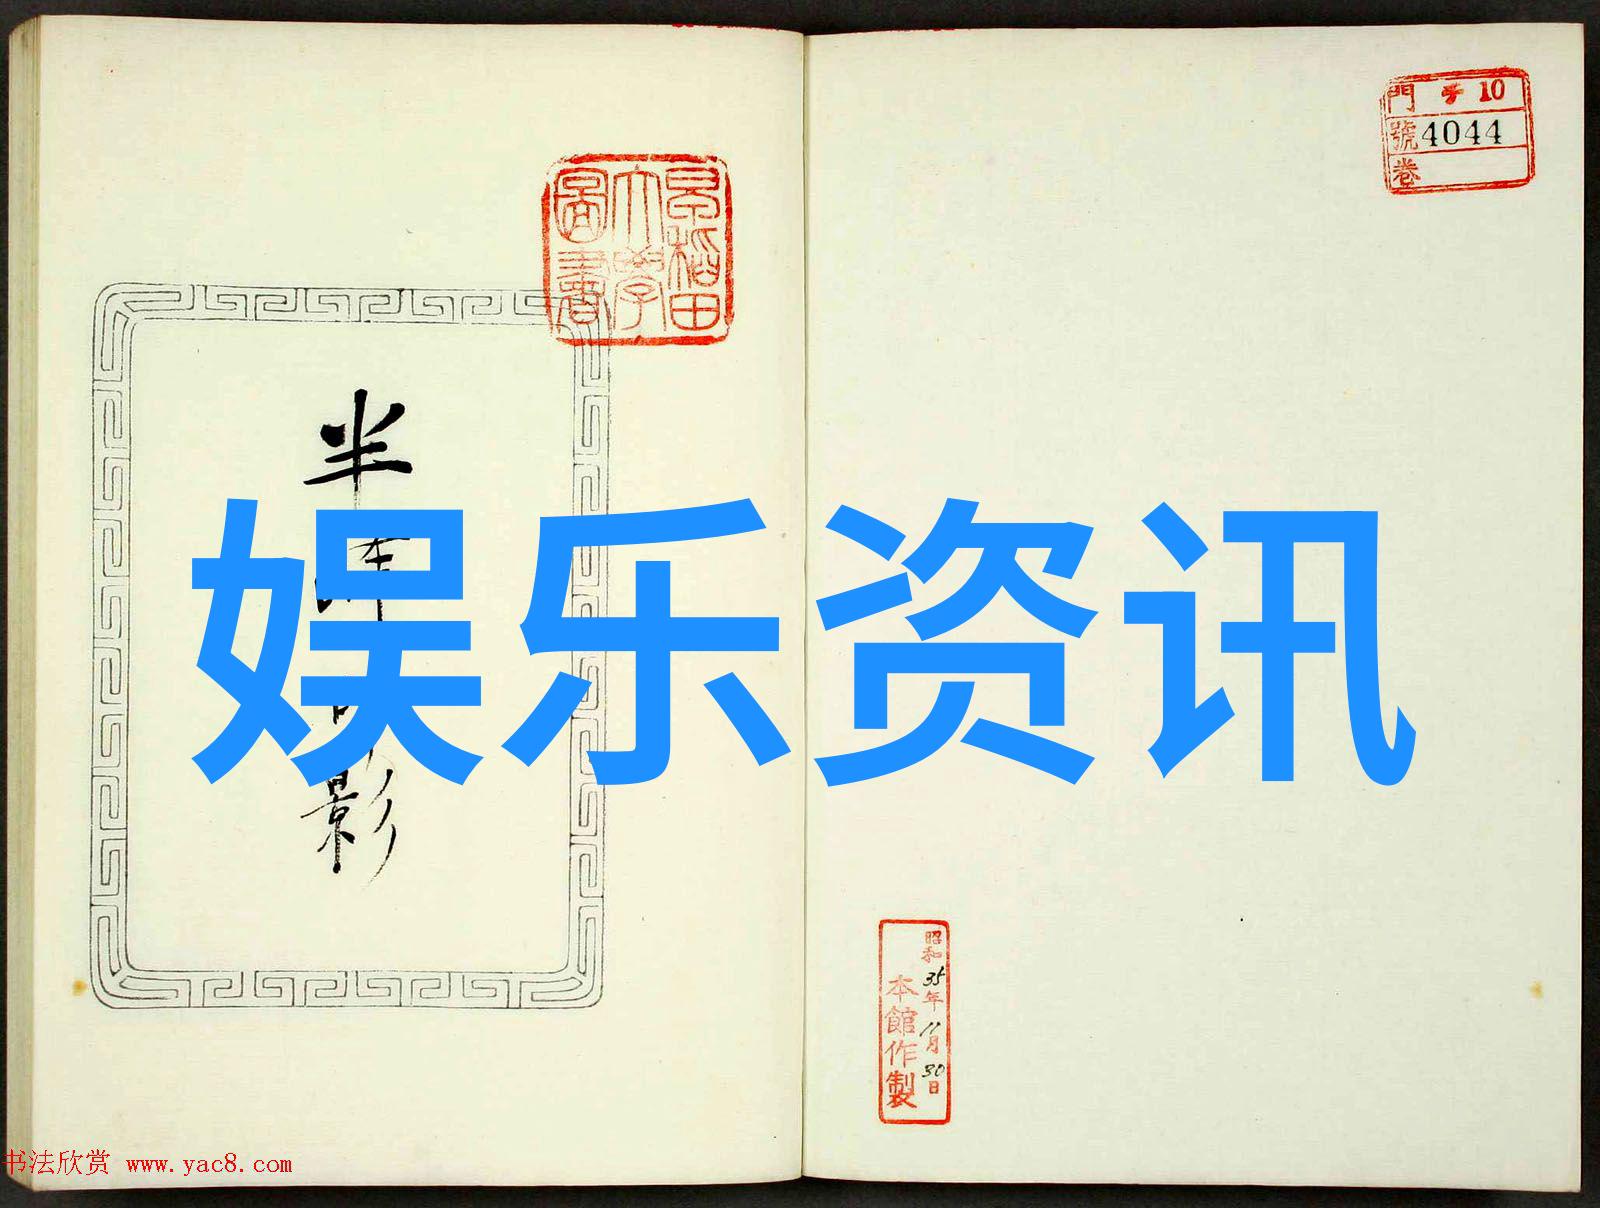 門 チ 10
號 4044
卷
早稲田
大學
圖書
半
影
娱乐资讯
昭和35年11月30日
本館作製
书法欣赏 www.yac8.com